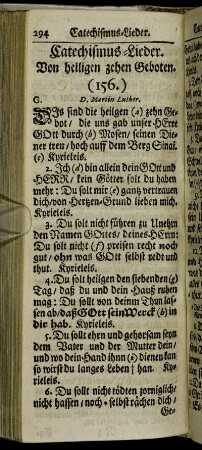 294 Catechismus-Lieder.
Catechismus-Lieder.
Von heiligen zehen Geboten.
(156.)
C. D. Martin Luther.
DIs sind die heilgen (a) zehn Ge-
bot / die uns gab unser HErre
GOtt durch (b) Mosen / seinen Die-
ner treu / hoch auff dem Berg Sinai.
(c) Kyrieleis.
2. Ich (d) bin allein dein GOtt und
HERR / kein Götter solt du haben
mehr: Du solt mir (e) gantz vertrauen
dich / von Hertzen-Grund lieben mich.
Kyrieleis.
3. Du solt nicht führen zu Unehrn
den Namen GOttes / deines HErrn:
Du solt nicht (f) preisen recht noch
gut / ohn was GOtt selbst redt und
thut. Kyrieleis.
4. Du solt heilgen den siebenden (g)
Tag / daß du und dein Hauß ruhen
mag: Du solt von deinm Thun las-
sen ab / daß GOtt sein Werck (h) in
dir hab. Kyrieleis.
5. Du solt ehrn und gehorsam seyn
dem Vater und der Mutter dein /
und wo dein Hand ihnn (i) dienen kan
so wirst du langes Leben han. Kyr-
ieleis.
6. Du solt nicht tödten zorniglich /
nicht hassen / noch selbst rächen dich /
Ge-